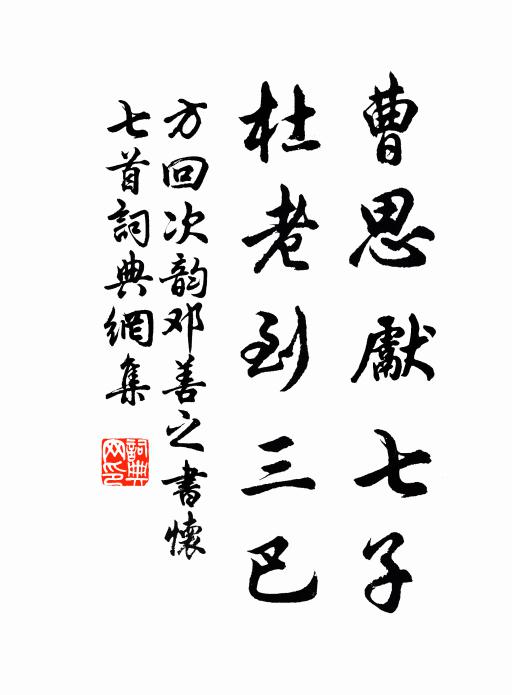 曹思獻七子
杜老到三巴
方回次韵邓善之書懷
七首詞典網集
詞典網印